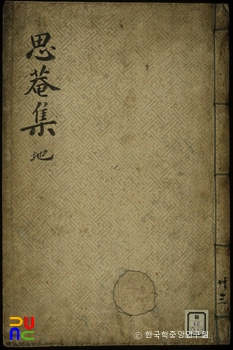 思菴集
地
© 한국학중앙연구원